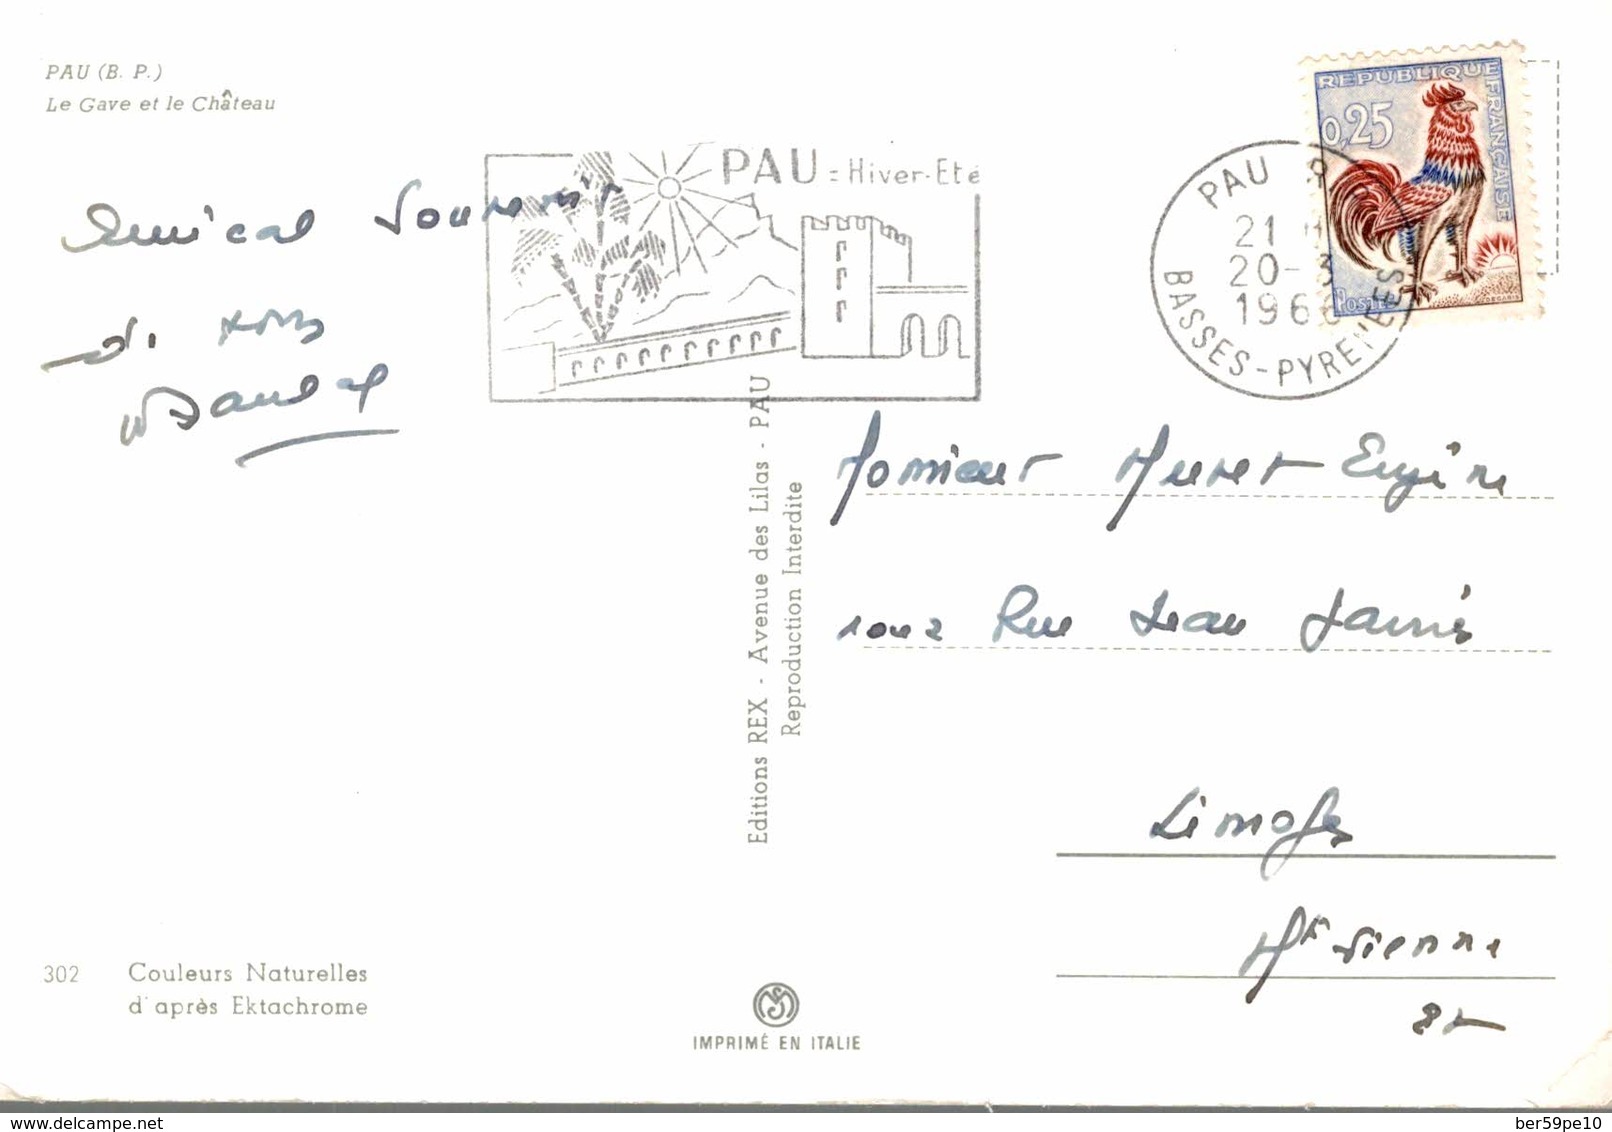 PAU (B. P.)
Le Gave et le Château
Amical Souvenir
de nous
PAU = Hiver-Eté
REPUBLIQUE FRANÇAISE
0,25
POSTES
DECARIS
PAU
21
20-3
196
BASSES-PYRENEES
Monsieur Muret Eugène
Rue Jean Jaurès
Limoges
Hte Vienne
87
Editions REX - Avenue des Lilas - PAU
Reproduction Interdite
302 Couleurs Naturelles
d'après Ektachrome
IMPRIMÉ EN ITALIE
delcampe.net
ber59pe10